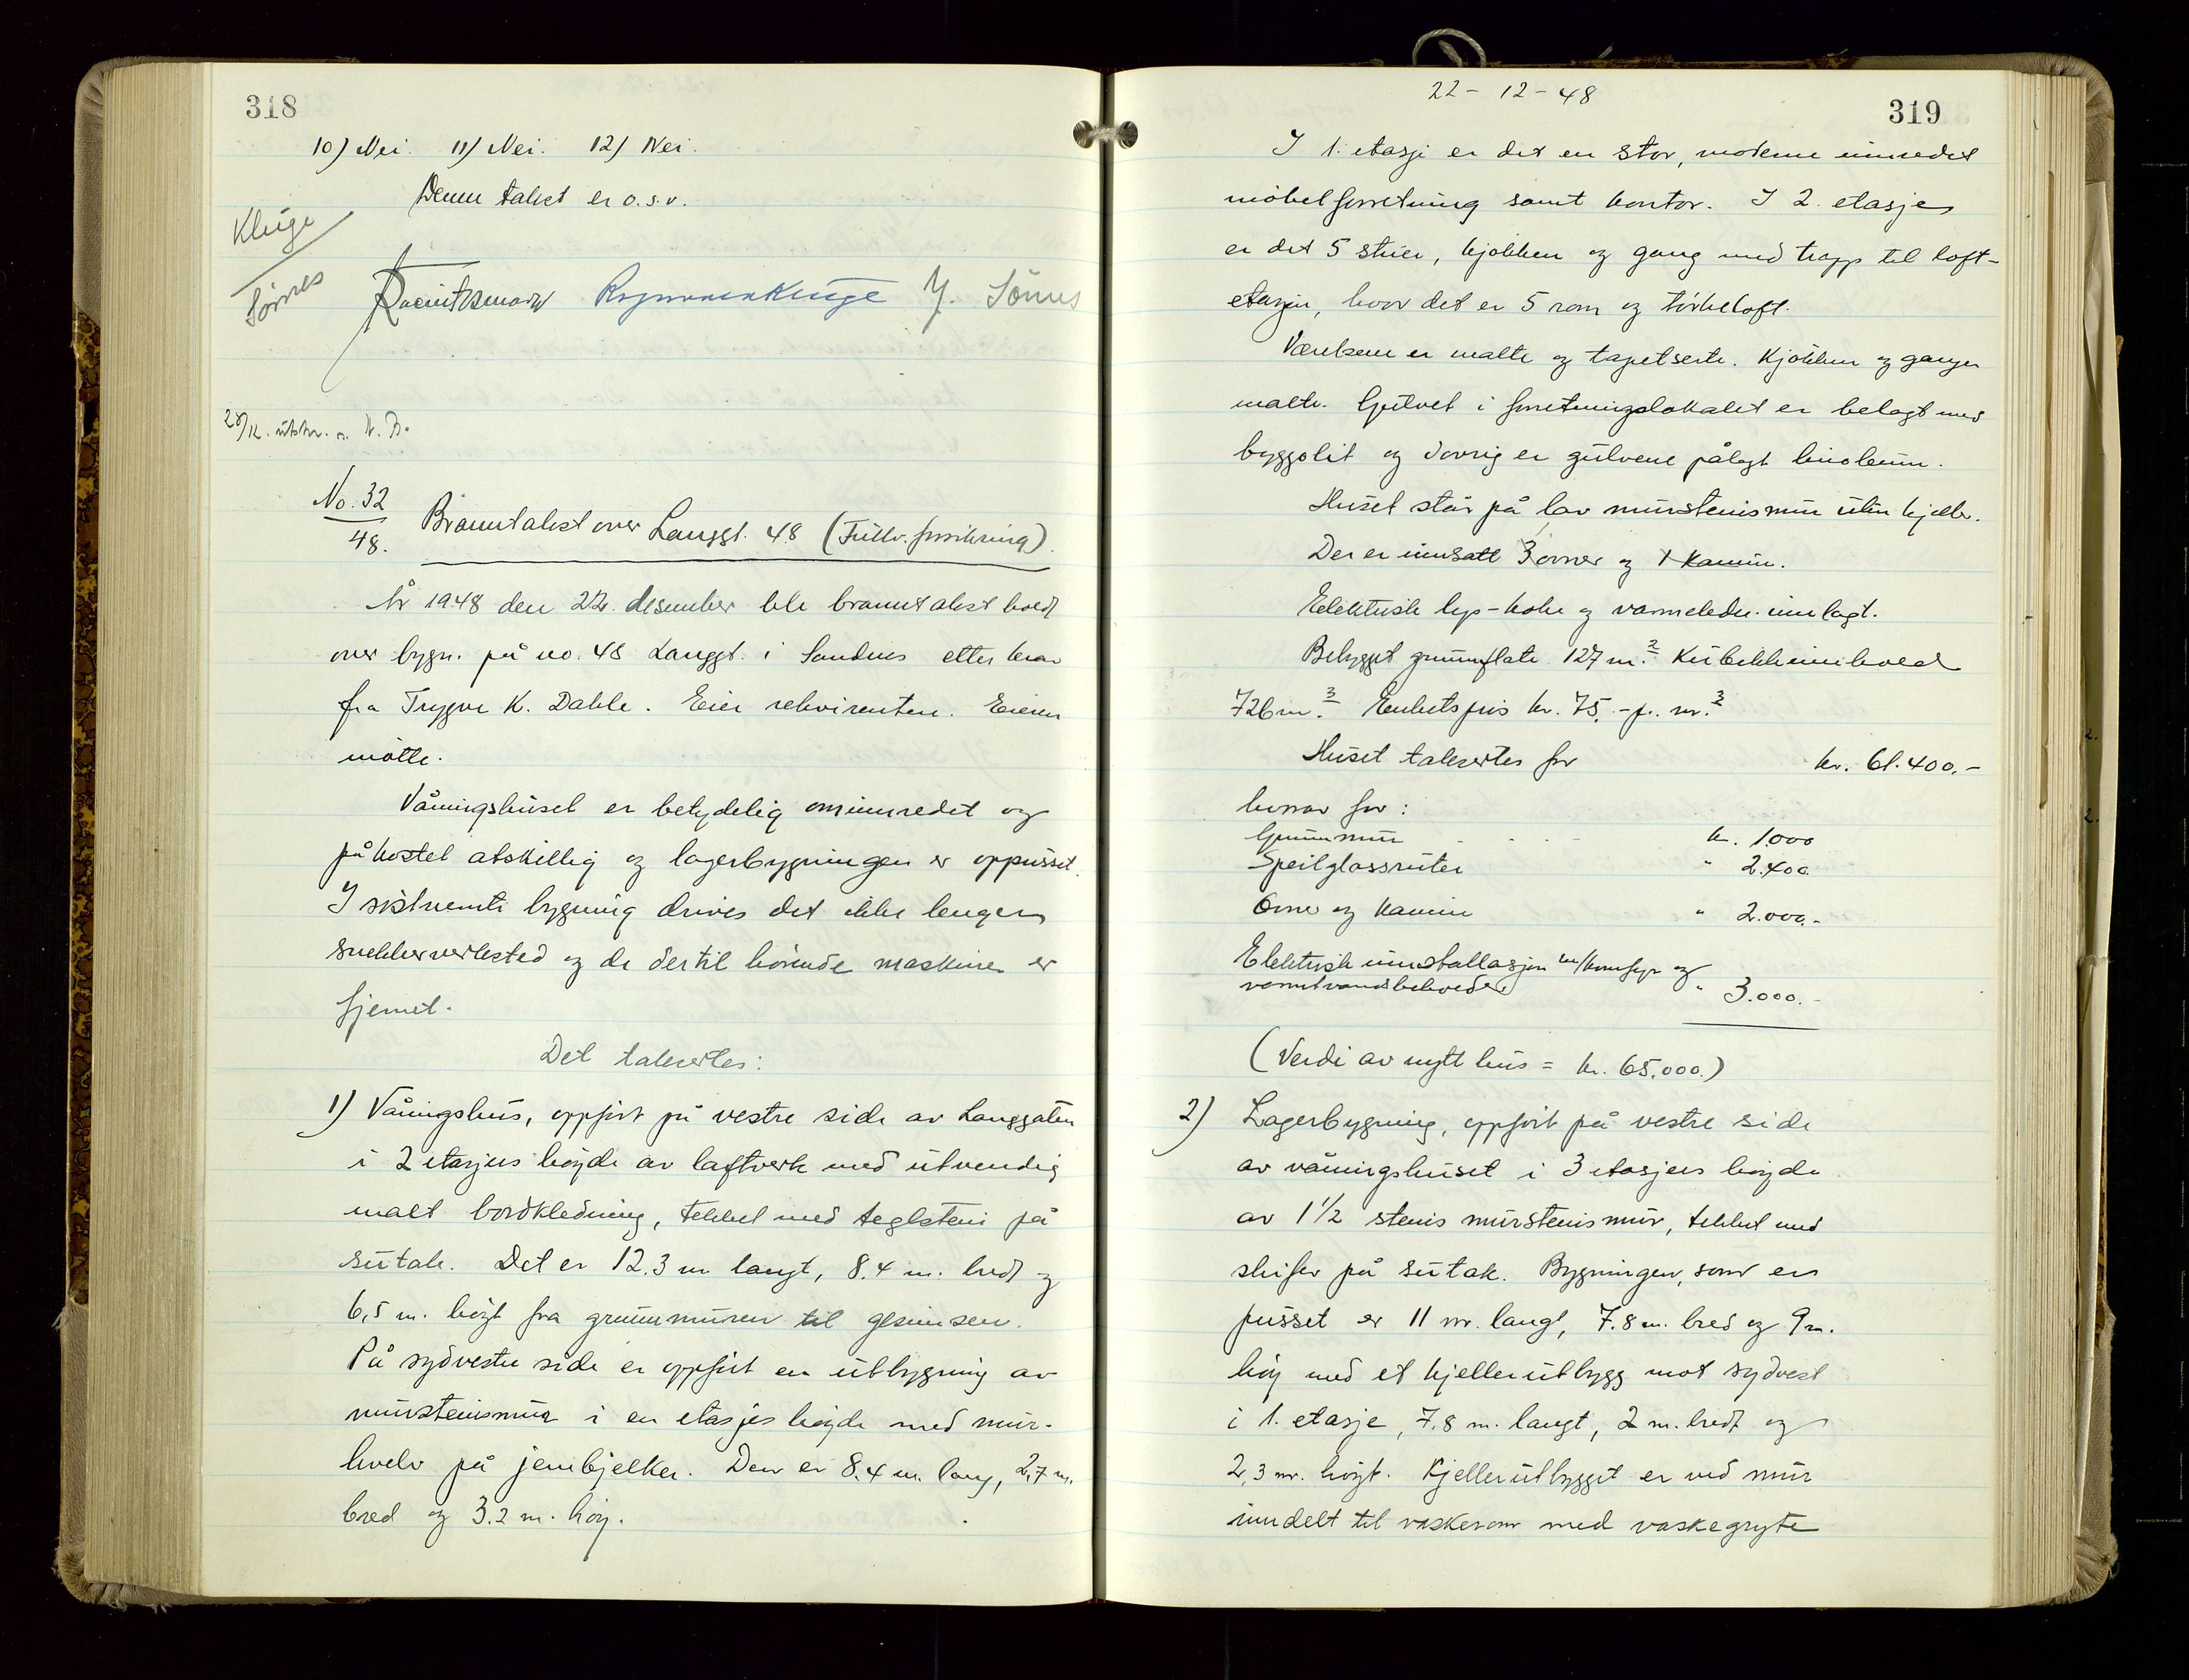 318
10) Nei. 11) Nei. 12) Nei.
Denne takst er o.s.v.
Kluge
Sörnes
Y. Sörnes
28/12. utskr. a. N. B.
No. 32
48.
Branntakst over Langgt. 48 (Fullv. forsikring).
År 1948 den 22. desember ble branntakst holdt
over bygn. på no. 48 Langgt. i Sandnes etter krav
fra Trygve K. Dahle. Eier rekvirenten. Eieren
møtte.
Våningshuset er betydelig ominnredet og
påkostet atskillig og lagerbygningen er oppusset.
I sistnevnte bygning drives det ikke lenger
snekkerverksted og de dertil hørende maskiner er
fjernet.
Det takseertes:
1) Våningshus, oppført på vestre side av Langgaten
i 2 etasjers høyde av laftverk med utvendig
malt bordkledning, tekket med teglsten på
sutak. Det er 12.3 m langt, 8.4 m. bredt og
6,5 m. høyt fra grunnmuren til gesimsen.
På sydvestre side er oppført en utbygning av
murstensmur i en etasjes høyde med mur-
hvelv på jernbjelker. Den er 8.4 m. lang, 2,7 m.
bred og 3.2 m. høy.
22 - 12 - 48
319
I 1. etasje er det en stor, moderne innredet
møbelforretning samt kontor. I 2. etasje
er det 5 stuer, kjøkken og gang med trapp til loft-
etasjen, hvor det er 5 rom og tørkeloft.
Værelsene er malte og tapetserte. Kjøkken og ganger
malte. Gulvet i forretningslokalet er belagt med
byggolit og dovrig er gulvene pålagt linoleum.
Huset står på lav murstensmur uten kjeller.
Der er innsatt 3 ovner og 1 kamin.
Elektrisk lys- koke og varmeledn. innlagt.
Bebygget grunnflate 127 m.2 Kubikkinnhold
726 m.3 Enhetspris kr. 75,- p. m.3
Huset takseertes for kr. 61.400,-
hvorav for:
Grunnmur kr. 1000
Speilglassruter " 2.400.
Ovner og kamin " 2.000.-
Elektrisk innstallasjon m/komfyr og
varmtvannsbeholder " 3.000.-
(Verdi av nytt hus = kr. 65.000.)
2) Lagerbygning, oppført på vestre side
av våningshuset i 3 etasjers høyde
av 1 1/2 stens murstensmur, tekket med
skifer på sutak. Bygningen, som er
pusset er 11 m. lang, 7.8 m. bred og 9 m.
høy med et kjellerutbygg mot sydvest
i 1. etasje, 7.8 m. langt, 2 m. bredt og
2,3 m. høyt. Kjellerutbygget er ved mur
inndelt til vaskerom med vaskegryte